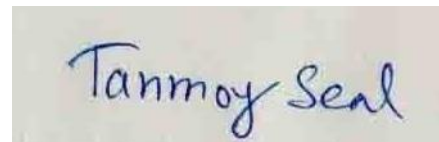 Tanmoy Seal